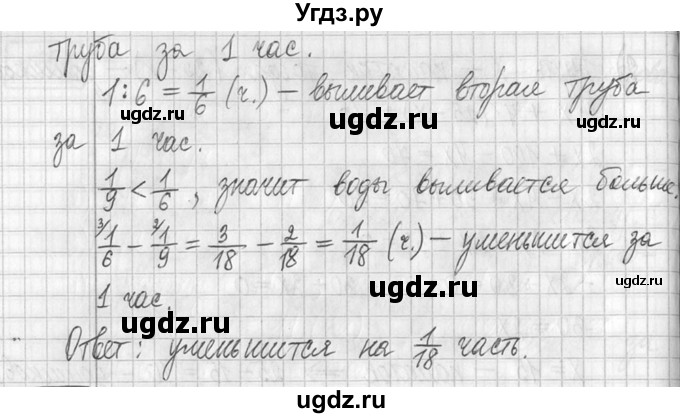 Угдз.ру
труба за 1 час.
1:6 = 1/6 (ч.) – выливает вторая труба
за 1 час.
1/9 < 1/6, значит воды выливается больше.
3/1/6 – 2/1/9 = 3/18 – 2/18 = 1/18 (ч.) – уменьшится за
1 час.
Ответ: уменьшится на 1/18 часть.
ugdz.ru
ugdz.ru
ugdz.ru
ugdz.ru
ugdz.ru
ugdz.ru
ugdz.ru
ugdz.ru
ugdz.ru
ugdz.ru
ugdz.ru
ugdz.ru